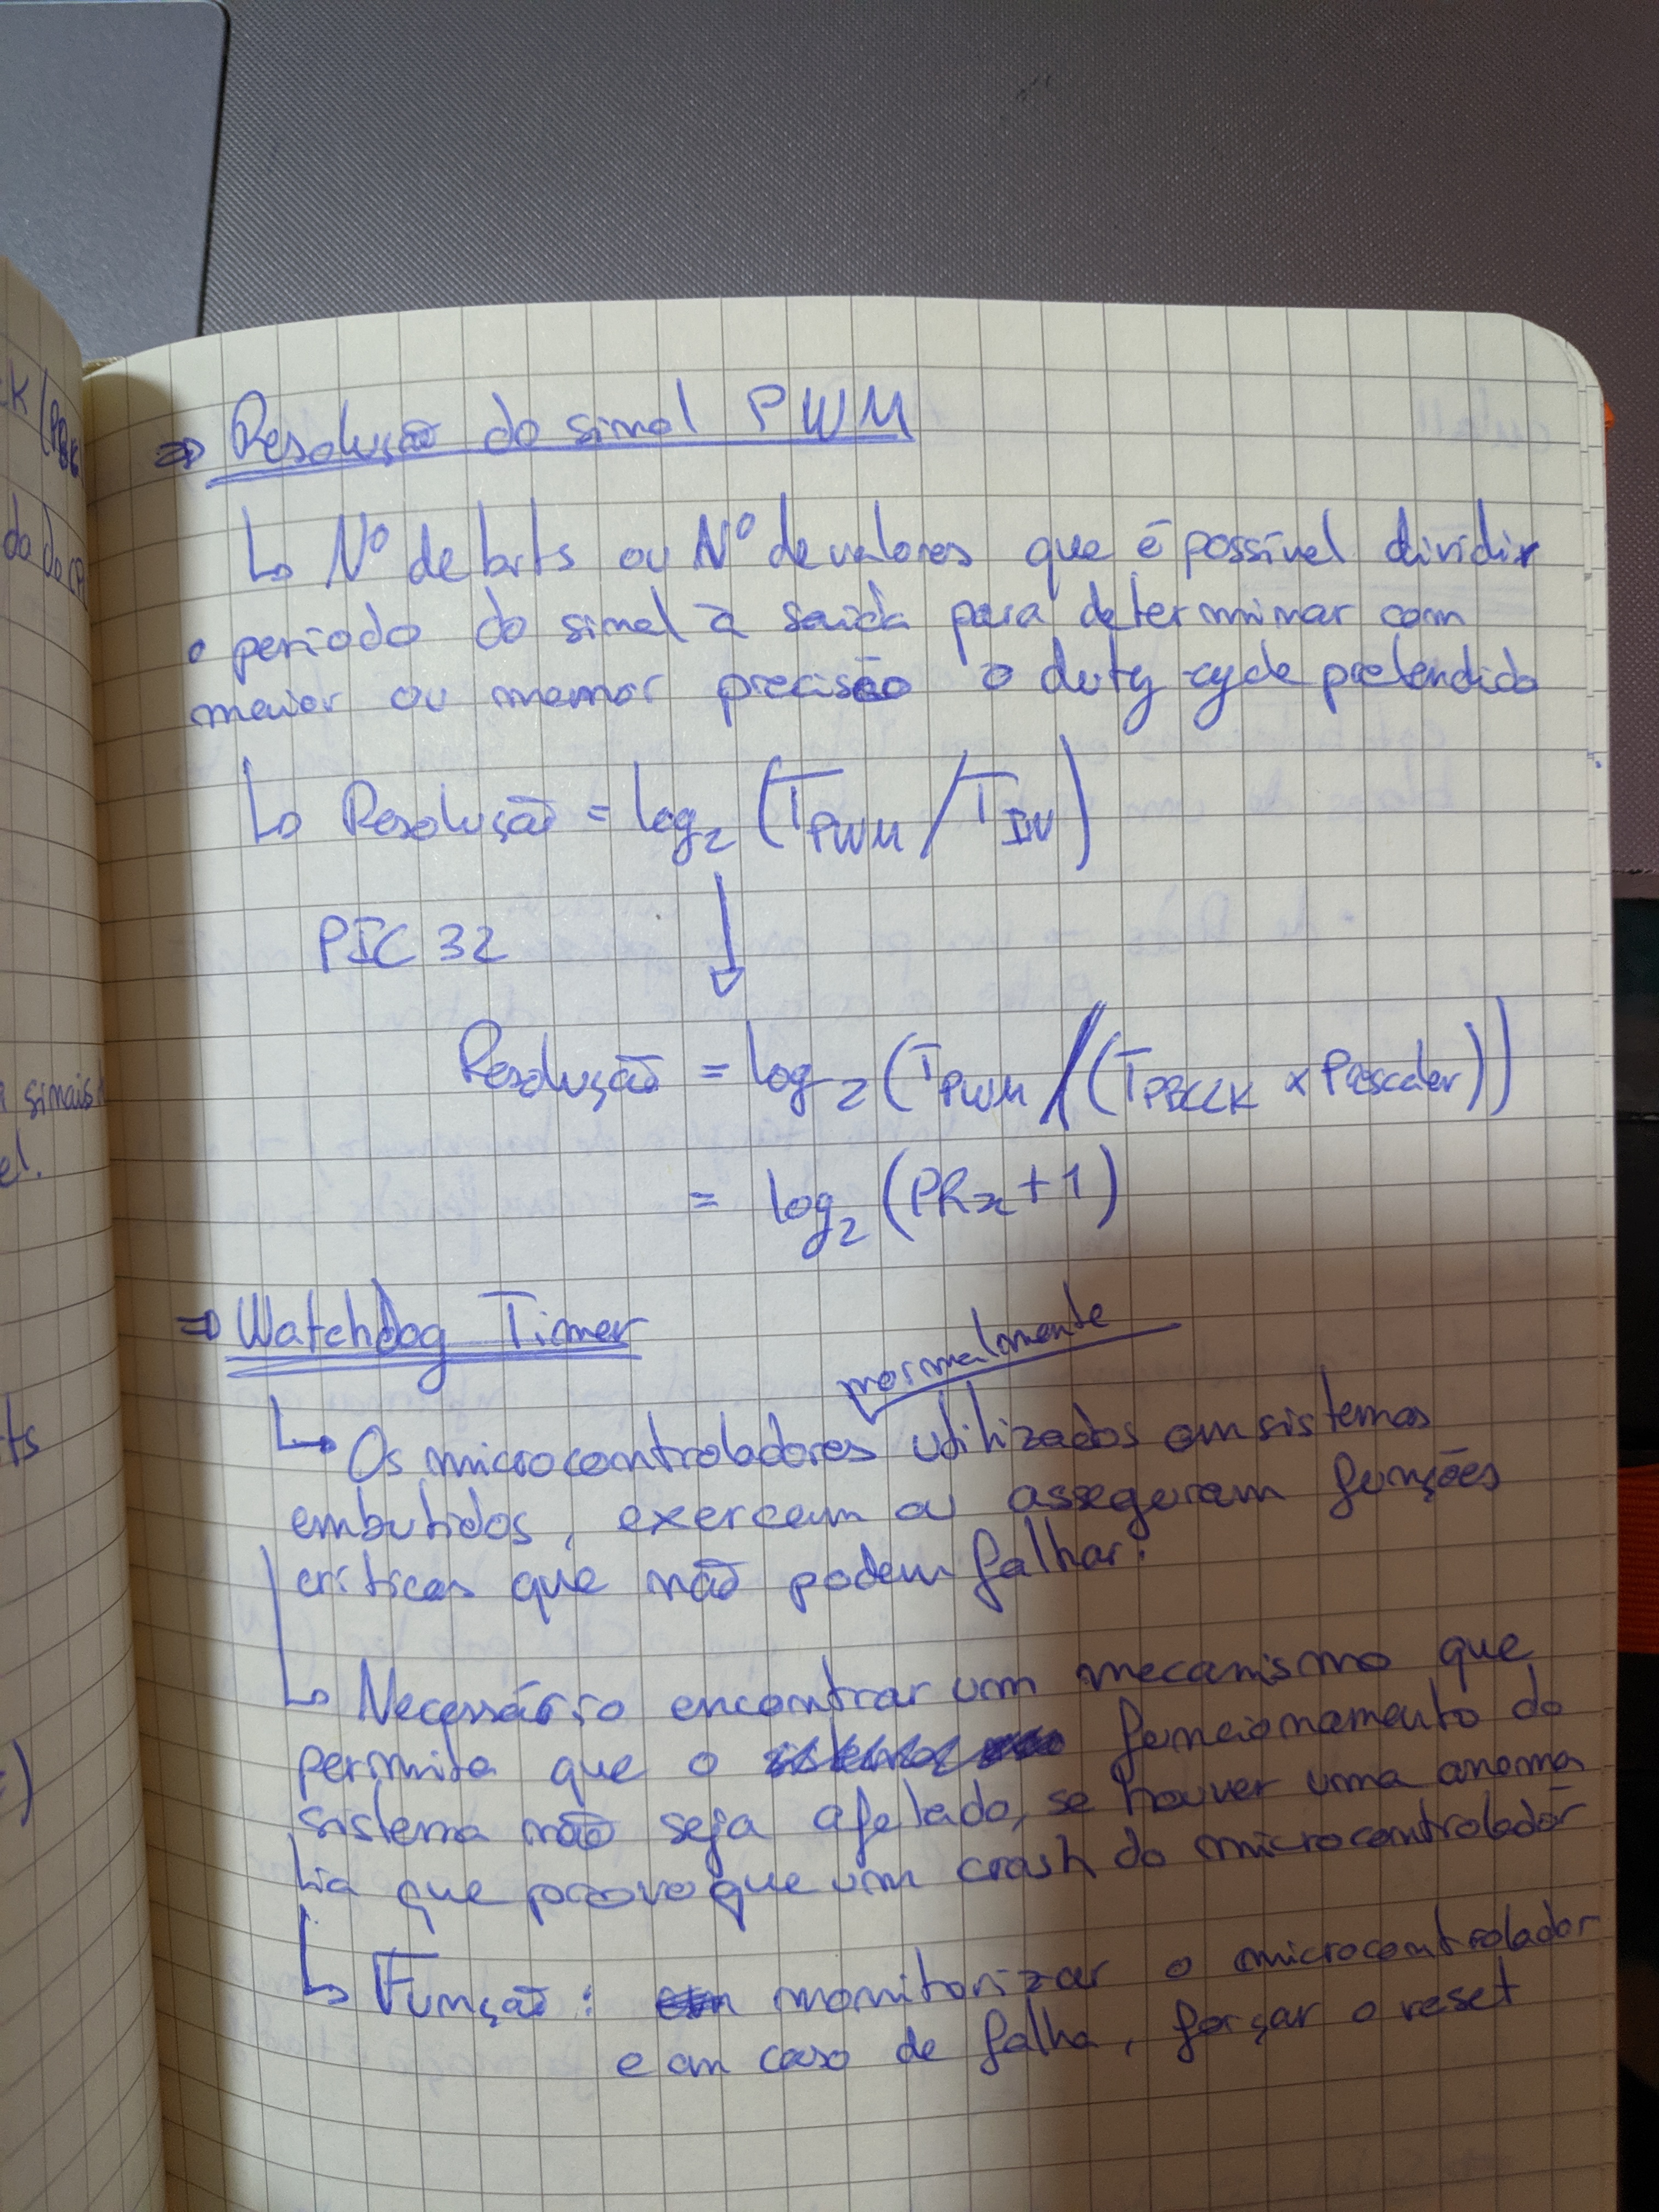 ⇒ Resolução do sinal PWM
↳ Nº de bits ou Nº de valores que é possível dividir
o período do sinal à saída para determinar com
maior ou menor precisão o duty-cycle pretendido
↳ Resolução = log₂ (T_PWM / T_IN)
PIC 32 ↓
Resolução = log₂ (T_PWM / (T_PBCLK × Prescaler))
= log₂ (PRx + 1)
⇒ Watchdog Timer
normalmente
↳ Os microcontroladores utilizados em sistemas
embutidos, exercem ou asseguram funções
críticas que não podem falhar.
↳ Necessário encontrar um mecanismo que
permita que o funcionamento do
sistema não seja afetado, se houver uma anoma
lia que provoque um crash do microcontrolador
↳ Função: monitorizar o microcontrolador
e em caso de falha, forçar o reset
sinais
el.
ts